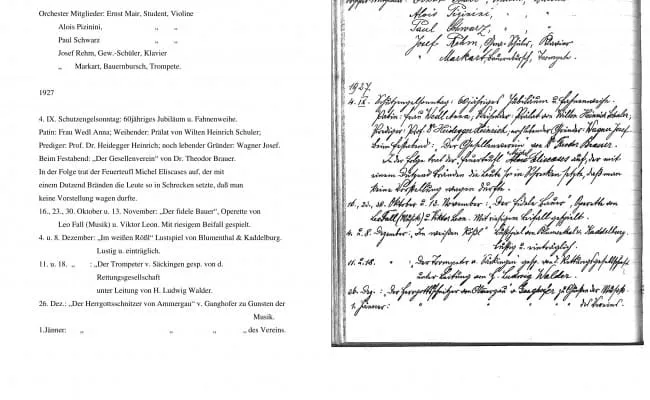 Orchester Mitglieder: Ernst Mair, Student, Violine
Alois Pizinini, „ „
Paul Schwarz „ „
Josef Rehm, Gew.-Schüler, Klavier
„ Markart, Bauernbursch, Trompete.
1927
4. IX. Schutzengelsonntag: 60jähriges Jubiläum u. Fahnenweihe.
Patin: Frau Wedl Anna; Weihender: Prälat von Wilten Heinrich Schuler;
Prediger: Prof. Dr. Heidegger Heinrich; noch lebender Gründer: Wagner Josef.
Beim Festabend: „Der Gesellenverein“ von Dr. Theodor Brauer.
In der Folge trat der Feuerteufl Michel Eliscases auf, der mit
einem Dutzend Bränden die Leute so in Schrecken setzte, daß man
keine Vorstellung wagen durfte.
16., 23., 30. Oktober u. 13. November: „Der fidele Bauer“, Operette von
Leo Fall (Musik) u. Viktor Leon. Mit riesigem Beifall gespielt.
4. u. 8. Dezember: „Im weißen Rößl“ Lustspiel von Blumenthal & Kaddelburg.
Lustig u. einträglich.
11. u. 18. „ : „Der Trompeter v. Säckingen gesp. von d.
Rettungsgesellschaft
unter Leitung von H. Ludwig Walder.
26. Dez.: „Der Herrgottschnitzer von Ammergau“ v. Ganghofer zu Gunsten der
Musik.
1.Jänner: „ „ „ „ des Vereins.
Alois Pizinini, „ „
Paul Schwarz, „ „
Josef Rehm, Gew. Schüler, Klavier
„ Markart, Bauernbursch, Trompete.
1927.
4. IX. Schutzengelsonntag: 60jähriges Jubiläum u. Fahnenweihe.
Patin: Frau Wedl Anna, Weihender: Prälat von Wilten Heinrich Schuler,
Prediger: Prof. Dr. Heidegger Heinrich, noch lebender Gründer: Wagner Josef
beim Festabend: „Der Gesellenverein“ von Dr. Theodor Brauer.
In der Folge trat der Feuerteufl Michel Eliscases auf, der mit
einem Dutzend Bränden die Leute so in Schrecken setzte, daß man
keine Vorstellung wagen durfte.
16., 23., 30. Oktober u. 13. November: „Der fidele Bauer“, Operette von
Leo Fall (Musik) u. Viktor Leon. Mit riesigem Beifall gespielt.
4. u. 8. Dezember: „Im weißen Rößl“ Lustspiel von Blumenthal & Kaddelburg.
Lustig u. einträglich.
11. u. 18. „ „Der Trompeter v. Säckingen gesp. von d. Rettungsgesellschaft
unter Leitung von H. Ludwig Walder.
26. Dez.: „Der Herrgottschnitzer von Ammergau“ v. Ganghofer zu Gunsten der Musik.
1. Jänner: „ „ „ „ des Vereins.